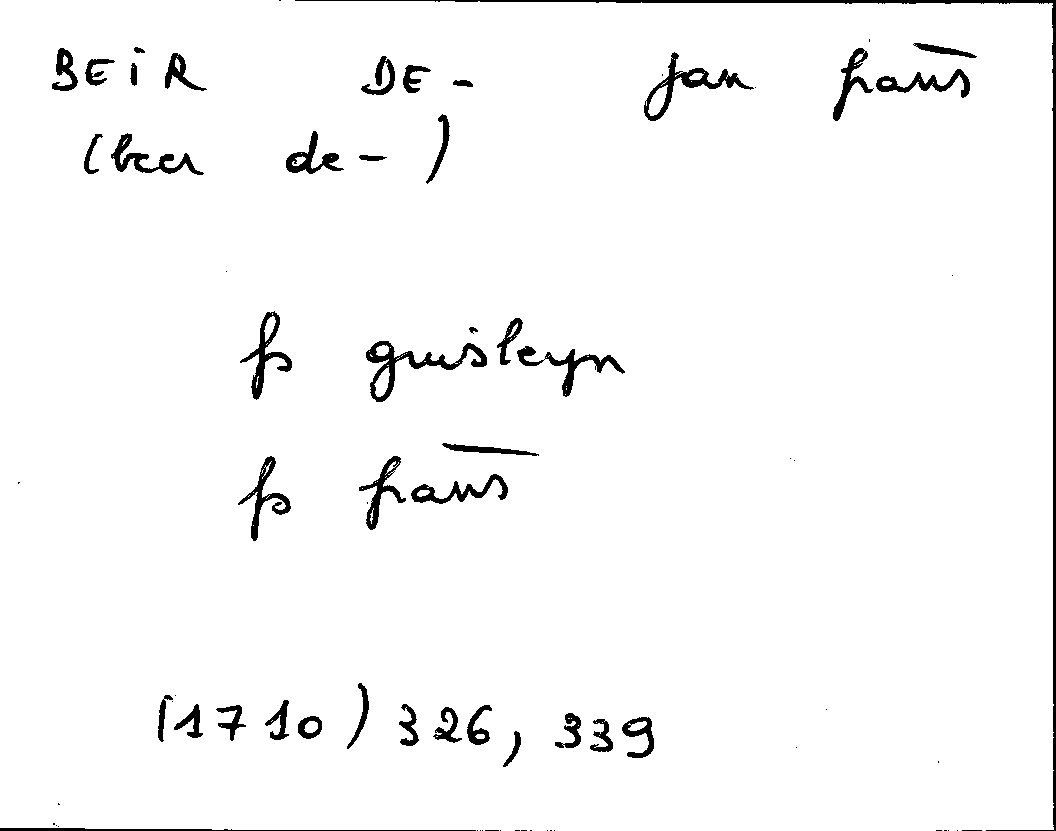 BEIR DE - jan frans
(beer de - )
fs guisleyn
fs frans
(1710) 326, 339